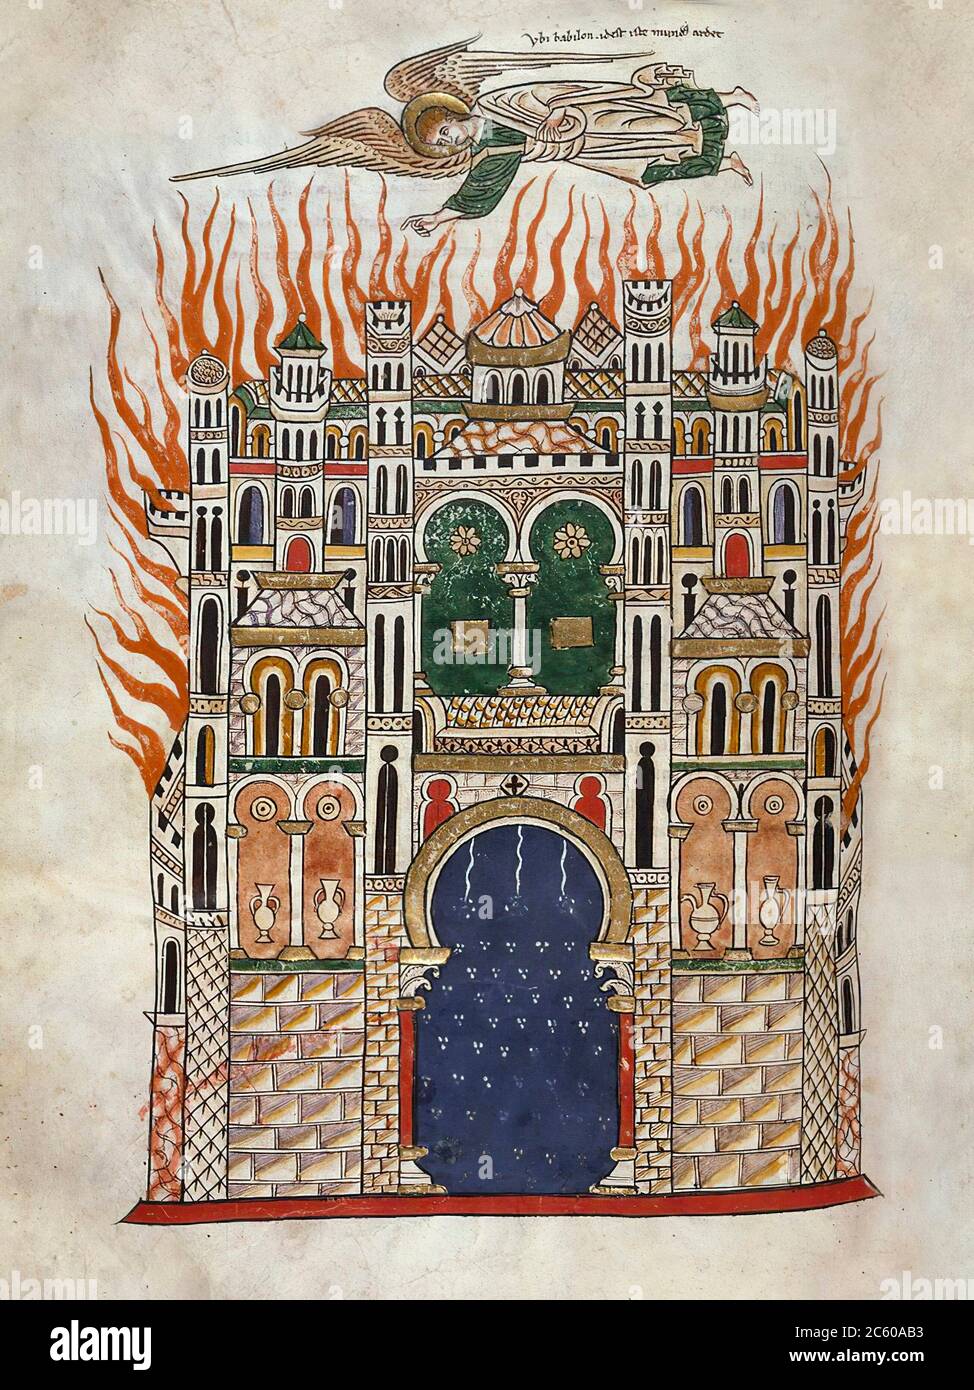 ybi babilon .idest iste mund9 ardet
alamy
Image ID: 2C60AB3
www.alamy.com